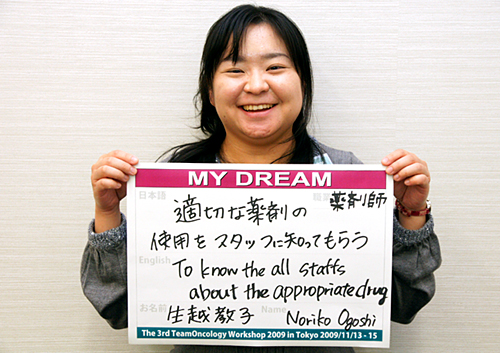 MY DREAM
日本語
職業
薬剤師
適切な薬剤の
使用をスタッフに知ってもらう
English
To know the all staffs
about the appropriate drug
お名前
Name
生越教子 Noriko Ogoshi
The 3rd TeamOncology Workshop 2009 in Tokyo 2009/11/13 - 15